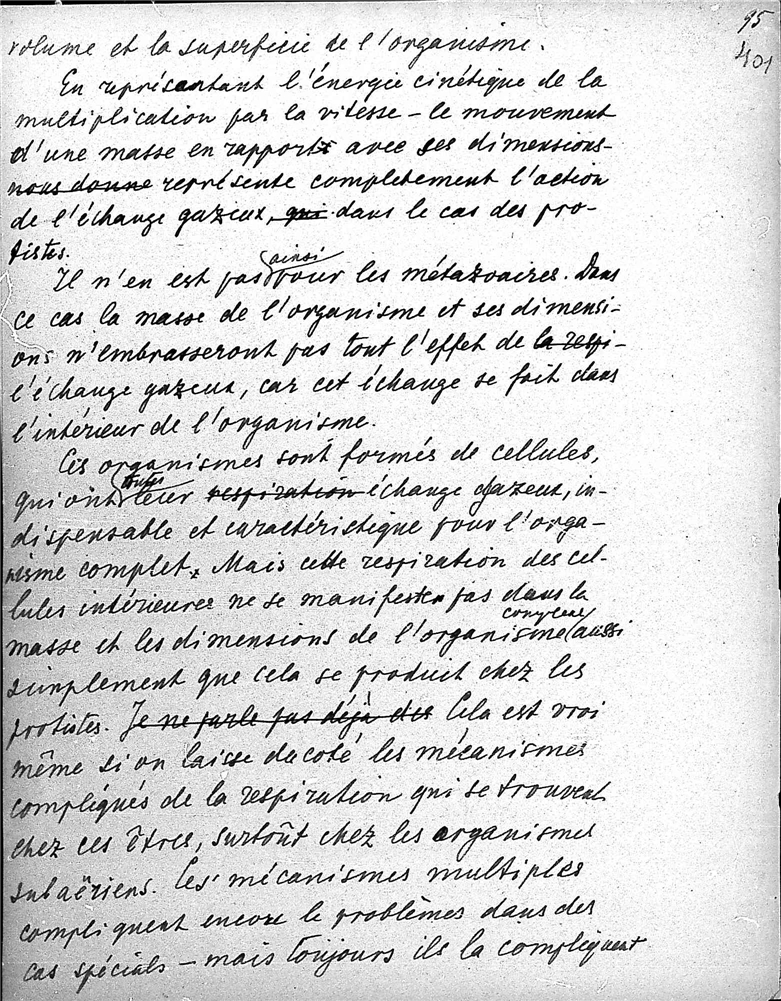 95
401
volume et la superficie de l'organisme.
En représentant l'énergie cinétique de la
multiplication par la vitesse – le mouvement
d'une masse en rapport avec ses dimensions–
nous donne représente completement l'action
de l'échange gazeux, qui dans le cas des pro-
tistes.
Il n'en est pas ainsi pour les métazoaires. Dans
ce cas la masse de l'organisme et ses dimensi-
ons n'embrasseront pas tout l'effet de la respi-
l'échange gazeux, car cet échange se fait dans
l'intérieur de l'organisme.
Ces organismes sont formés de cellules,
qui ont toutes leur respiration échange gazeux, in-
dispensable et caractéristique pour l'orga-
nisme complet. Mais cette respiration des cel-
lules intérieures ne se manifeste pas dans la
masse et les dimensions de l'organisme complexe aussi
simplement que cela se produit chez les
protistes. Je ne parle pas déjà des Cela est vrai
même si on laisse da coté les mécanismes
compliqués de la respiration qui se trouvent
chez ces êtres, surtoût chez les organismes
subaëriens. Ces mécanismes multiples
compliquent encore le problèmes dans des
cas spécials – mais toujours ils la compliquent